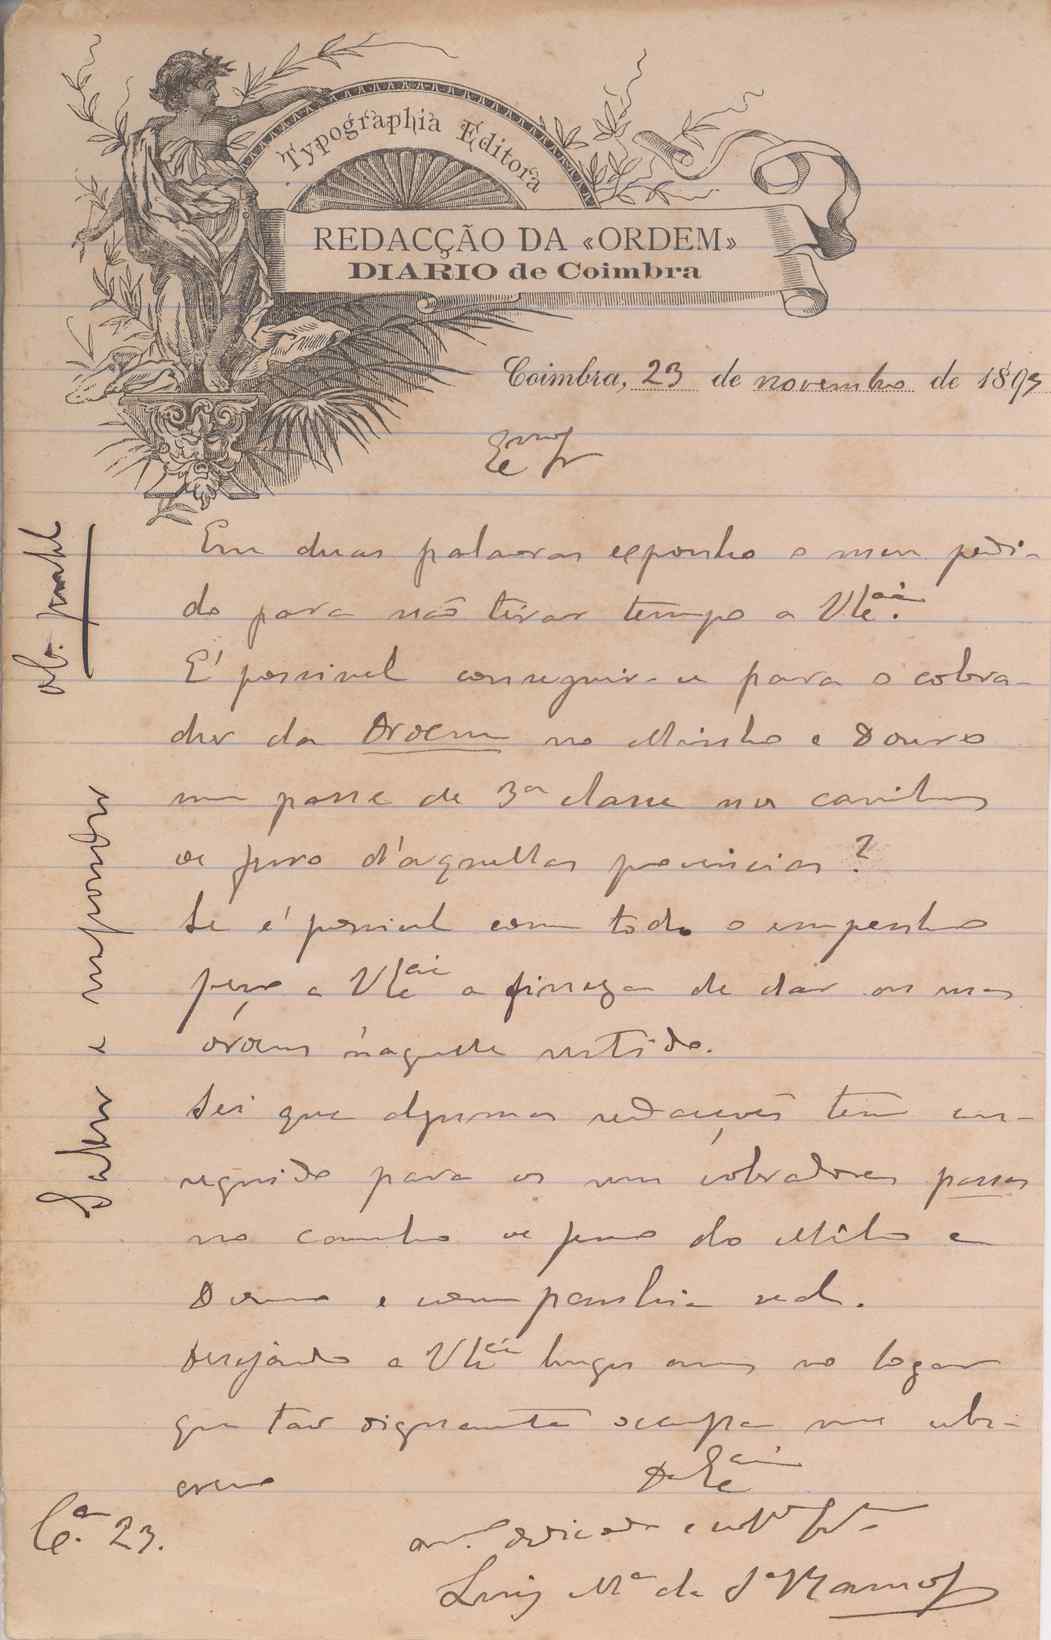 Typographia Editora
REDACÇÃO DA «ORDEM»
DIARIO de Coimbra
Coimbra, 23 de novembro de 1893
Em duas palavras exponho o meu pedi-
do para não tirar tempo a V. Ex.cia.
E' possivel conseguir-se para o cobra-
dor da Ordem no Minho e Douro
um passe de 3ª classe nos caminhos
de ferro d'aquellas provincias?
Se é possivel com todo o empenho
peço a V. Ex.cia a fineza de dar as suas
órdens n'aquelle sentido.
Sei que algumas redacções tem con-
seguido para os seus cobradores passes
no caminho de ferro do Minho e
Douro e companhia real.
Desejando a V. Ex.cia longos annos no logar
que tão dignamente occupa me subs-
crevo
De V. Ex.cia
C.ª 23.
am.º dedicado e
Luiz Mª da Sª Ramos